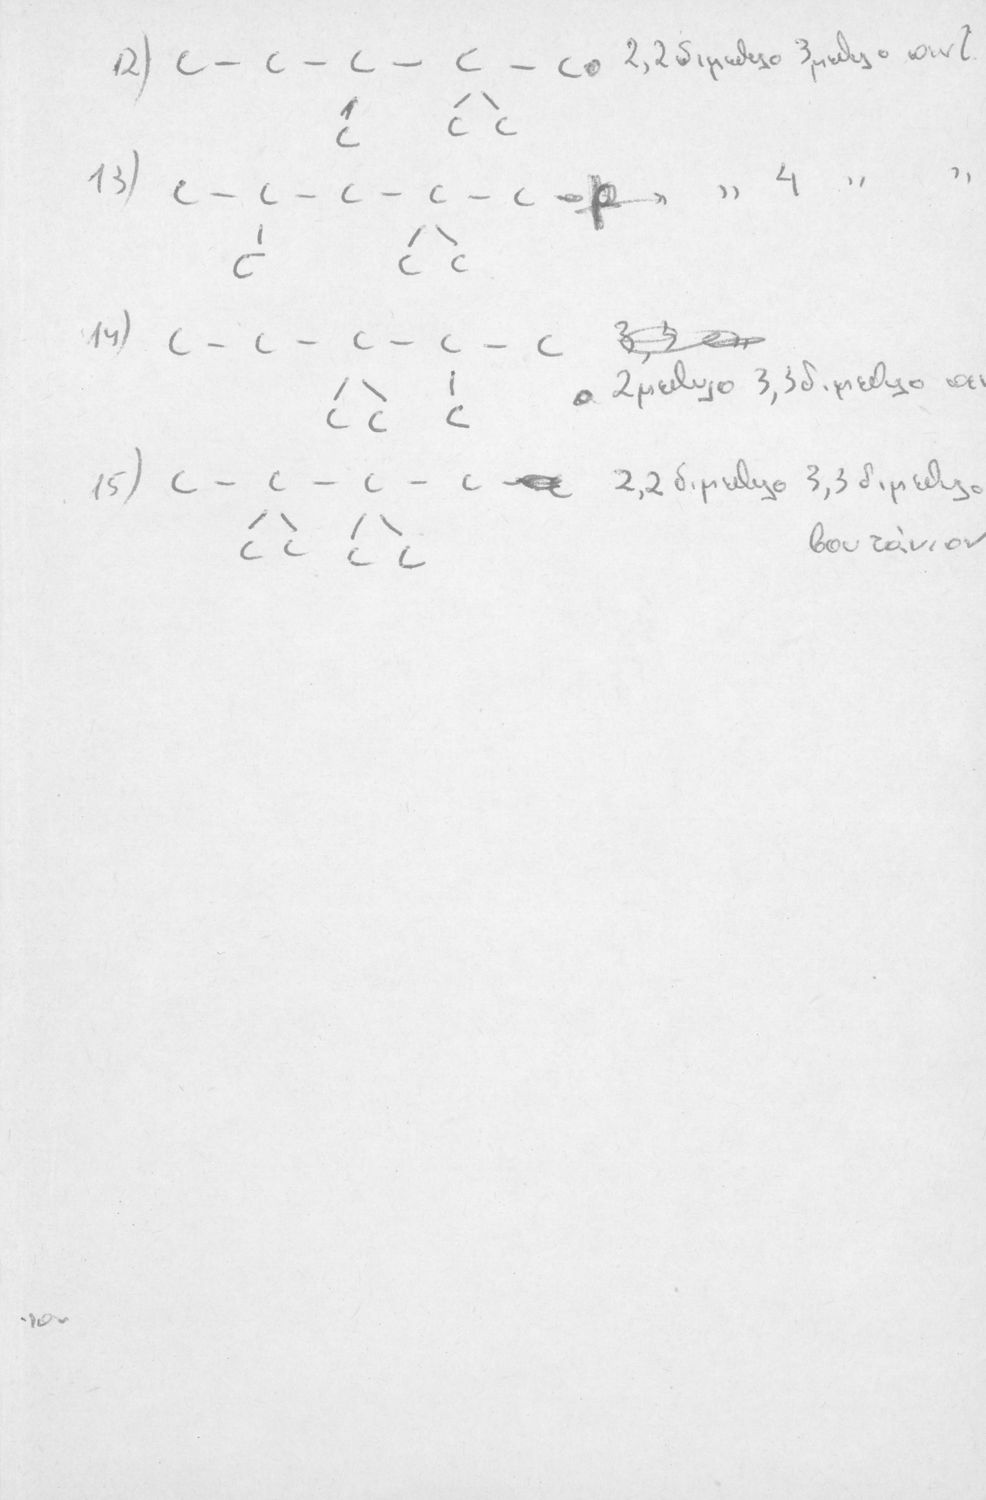 12) C – C – C – C – C 2,2 διμεθυλο 3 μεθυλο πεντ
C C C
13) C – C – C – C – C „ 4 „ „
C C C
14) C – C – C – C – C 3,3
2 μεθυλο 3,3 διμεθυλο πεν
C C C
15) C – C – C – C 2,2 διμεθυλο 3,3 διμεθυλο
C C C C βουτάνιον